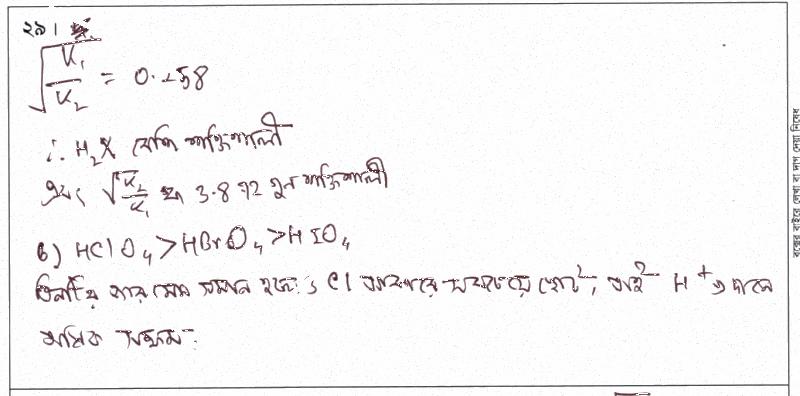 ২৯।
√(K₁/K₂) = 0.258
∴ H₂X বেশি শক্তিশালী
এবং √(K₂/K₁) বা 3.872 গুন শক্তিশালী
b) HClO₄ > HBrO₄ > HIO₄
তিনটির জারন মান সমান হলেও Cl আকারে সবচেয়ে ছোট, তাই H⁺ দানে
অধিক সক্ষম।
বক্সের বাইরে লেখা বা দাগ দেয়া নিষেধ